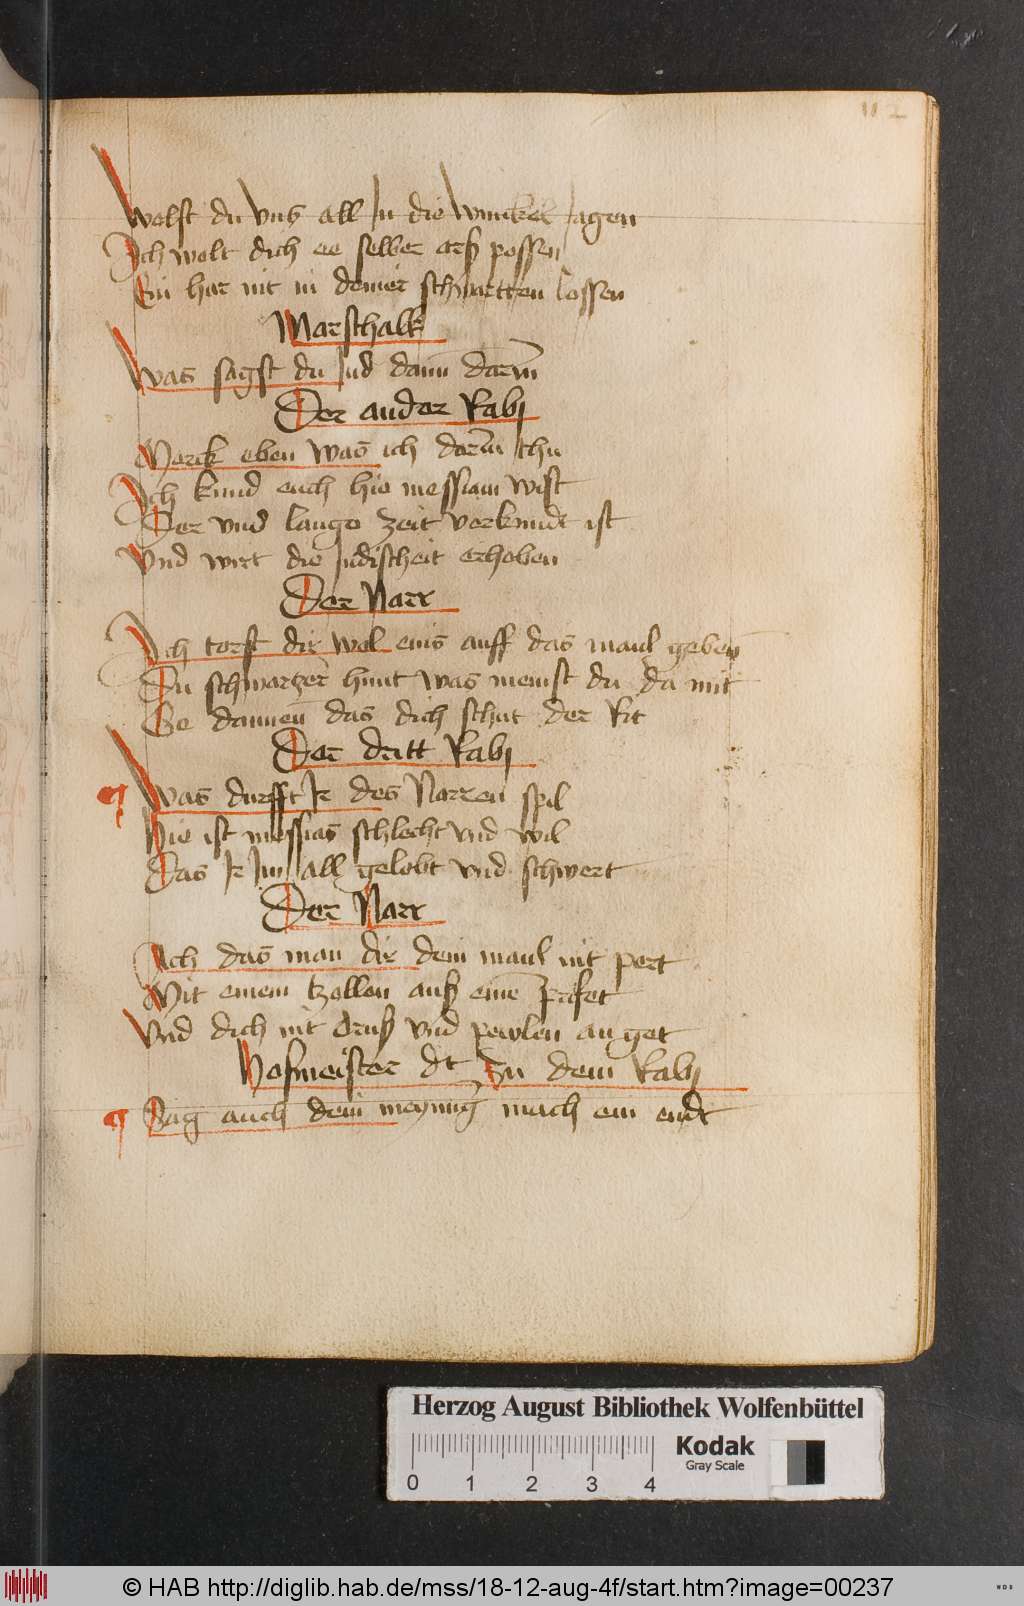 112
Wolst du vns all In die winckel Iagen
Ich wolt dich ee selber erst possen
Ein har nit in deiner schwartzen lossen
Marschalk
Was sagst du Iud dann darin
Der ander Rabi
Merck eben was ich darin thu
Ich kund euch hie messiam wist
Der vnd lange zeit verkundt ist
Vnd wirt die Iudischeit erheben
Der Narr
Ich torst dir wol eins auff das maul geben
Du schwartzer hunt was meinst du da mit
Ge dannen das dich schut der Rit
Der dritt Rabi
Was durfft Ir des Narren spil
Hie ist messias schlecht vnd wil
Das Ir Im all gelobt vnd schwert
Der Narr
Ach das man dir dein maul nit pert
Mit einem tzollen auß eine
Vnd dich nit druß vnd pewlen an get
Hofmeister dt Zu dem Rabi
Sag auch dein meynung mach ein endt
Herzog August Bibliothek Wolfenbüttel
0 1 2 3 4
Kodak
Gray Scale
© HAB http://diglib.hab.de/mss/18-12-aug-4f/start.htm?image=00237